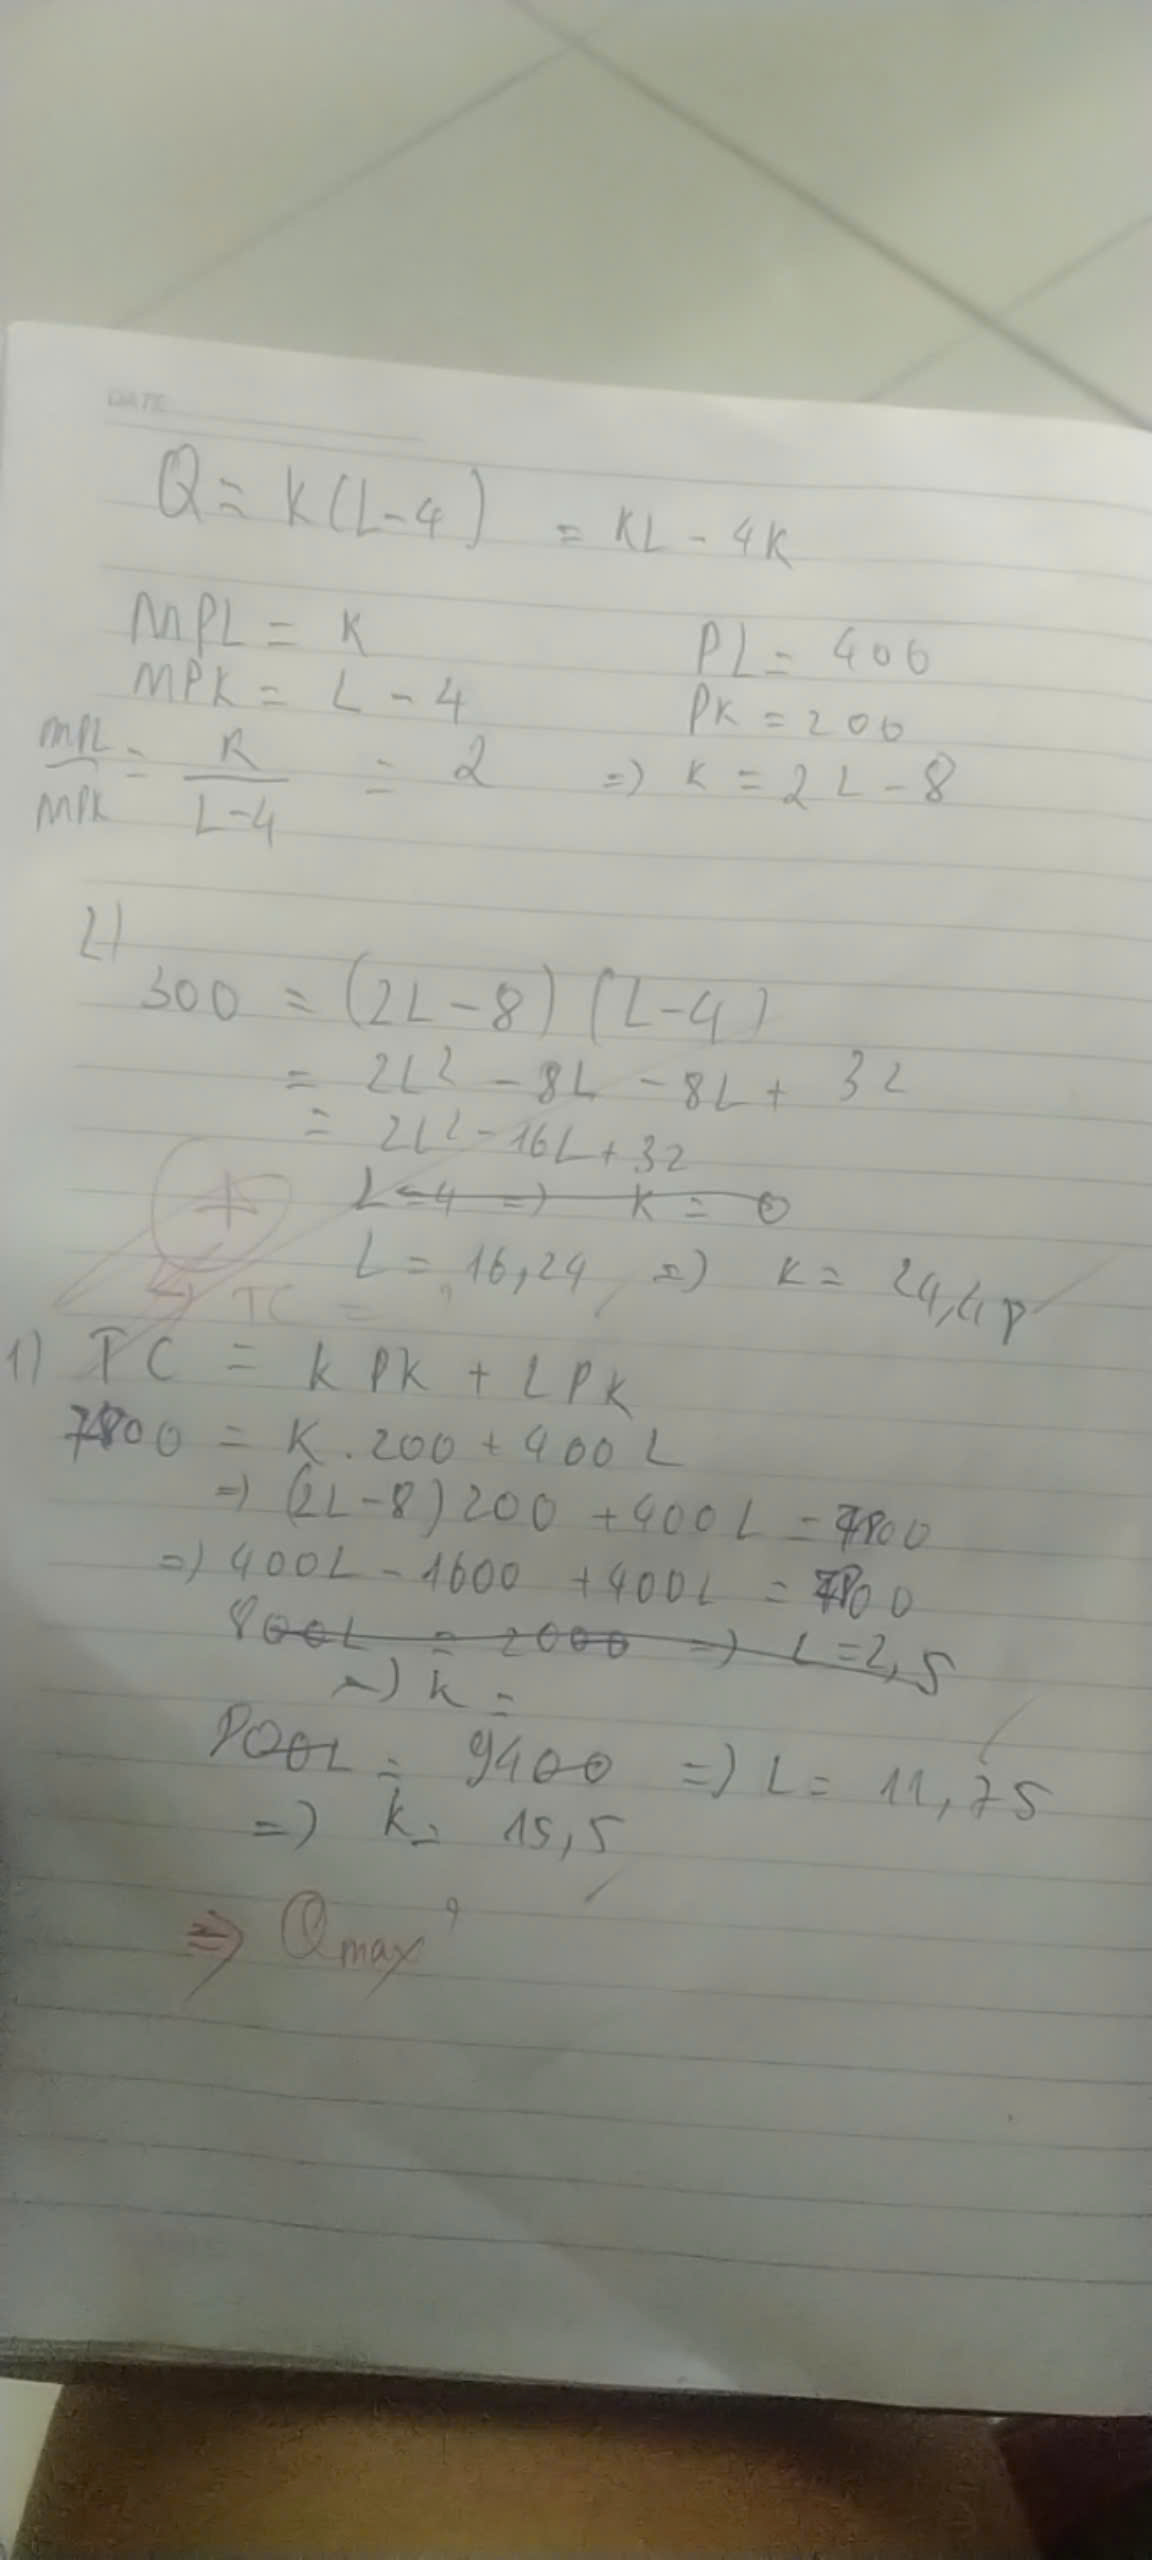 DATE
Q = K(L-4) = KL - 4K
MPL = K PL = 400
MPK = L - 4 PK = 200
MPL/MPK = K/(L-4) = 2 => K = 2L - 8
2)
300 = (2L-8)(L-4)
= 2L² - 8L - 8L + 32
= 2L² - 16L + 32
L = 4 => K = 0
L = 16,24 => K = 24,48
TC = ?
1) TC = K PK + L PK
7800 = K.200 + 400L
=> (2L-8)200 + 400L = 7800
=> 400L - 1600 + 400L = 7800
800L = 2000 => L = 2,5
=> K =
800L = 9400 => L = 11,75
=> K = 15,5
=> Qmax ?